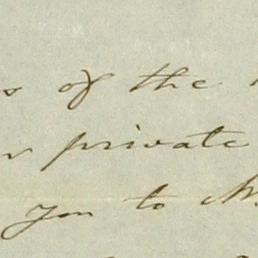 of the
private
you to